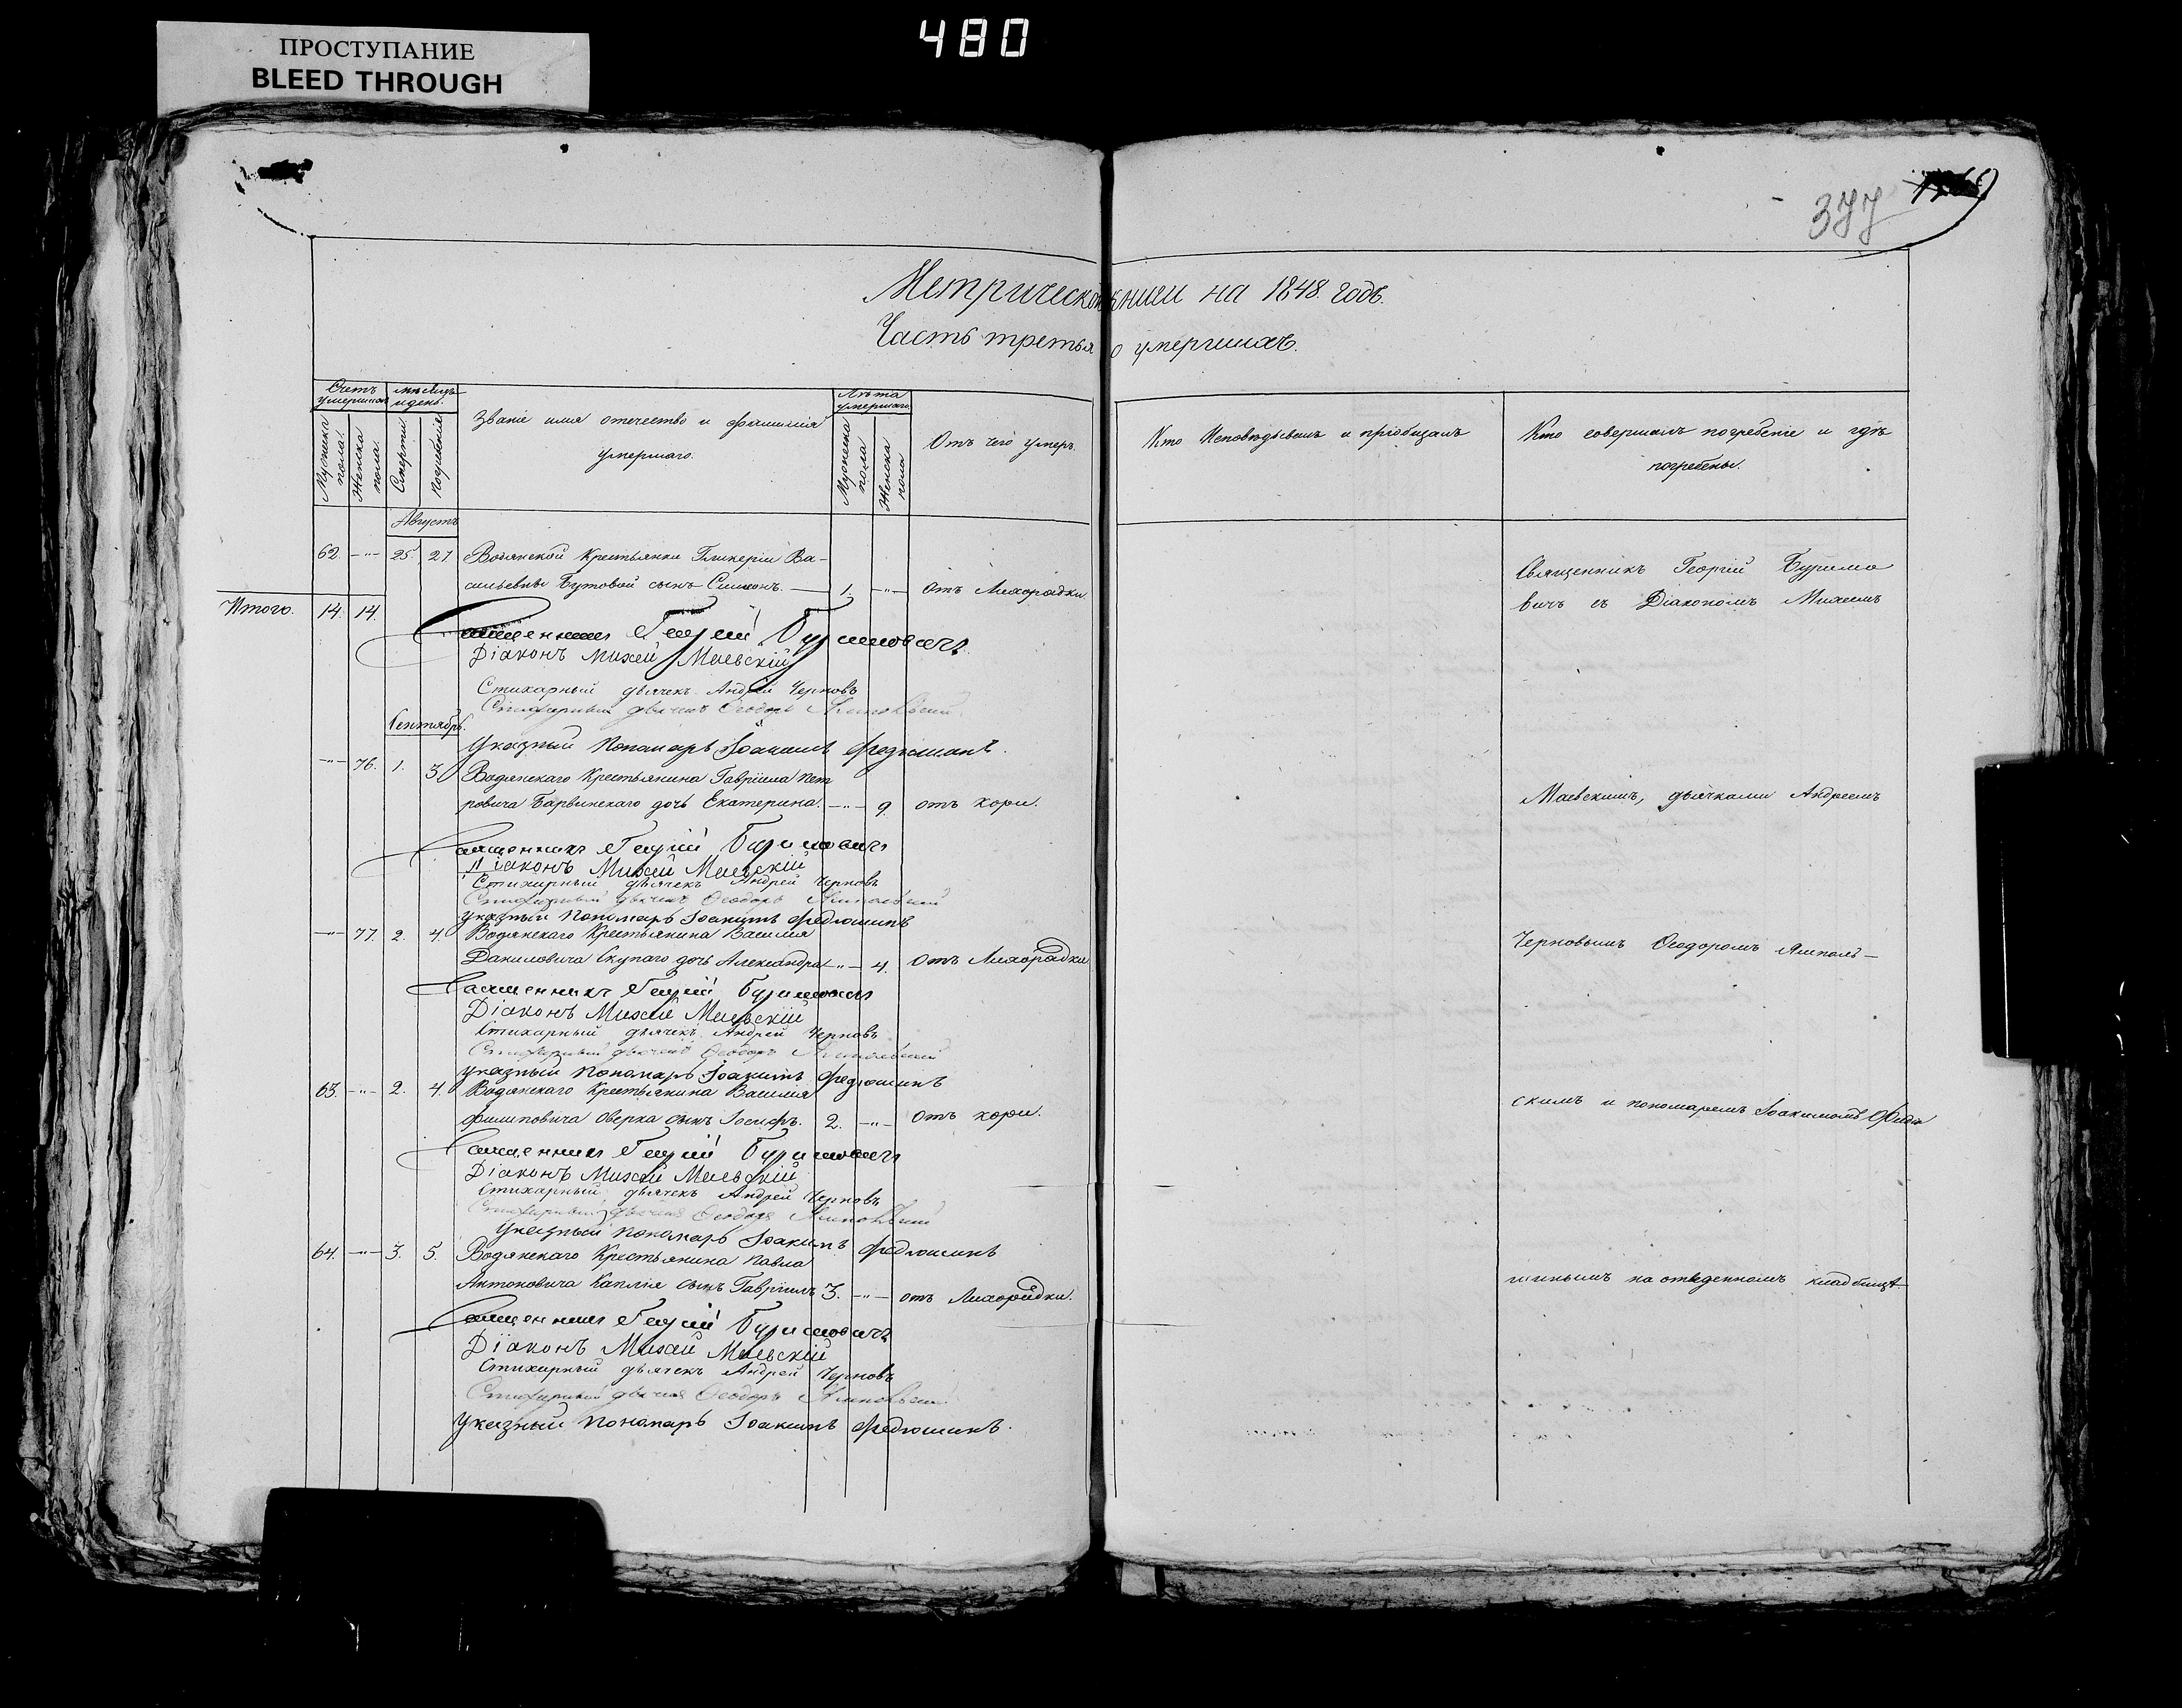 480
ПРОСТУПАНИЕ
BLEED THROUGH
377
Метрической книги на 1848. годъ.
Часть третья о умершихъ.
Счетъ умершихъ
Мужеска пола.
Женска пола.
мѣсяцъ и день.
Смерти.
Погребенія
Званіе имя отечество и фамилія
умершаго.
Лѣта умершаго.
Мужеска пола
Женска пола
Отъ чего умеръ.
Кто Исповѣдывалъ и пріобщалъ
Кто совершалъ погребеніе и гдѣ
погребены.
Августъ
62. -"- 25 27 Водянской Крестьянки Гликеріи Ва-
сильевны Бутовой сынъ Симеонъ. — 1. -"- Отъ Лихорадки.
Священникъ Георгій Буримо
вичъ съ Діакономъ Михеемъ
Итого. 14. 14.
Священникъ Георгій Буримовичъ
Діаконъ Михей Маевскій
Стихарный дьячекъ Андрей Черновъ
Стихарный дьячекъ Ѳеодоръ Ямпольскій
Сентябрь.
Указный Пономарь Іоакимъ Федюшинъ.
-"- 76. 1. 3. Водянскаго Крестьянина Гавріила Пет
ровича Барвинскаго дочь Екатерина. -"- 9. отъ кори.
Маевскимъ, дьячками Андреемъ
Священникъ Георгій Буримовичъ
Діаконъ Михей Маевскій
Стихарный дьячекъ Андрей Черновъ
Стихарный дьячекъ Ѳеодоръ Ямпольскій
Указный Пономарь Іоакимъ Федюшинъ
-"- 77. 2. 4. Водянскаго Крестьянина Василія
Даниловича Скупаго дочь Александра -"- 4. Отъ Лихорадки
Черновымъ Ѳеодоромъ Ямполь-
Священникъ Георгій Буримовичъ
Діаконъ Михей Маевскій
Стихарный дьячекъ Андрей Черновъ
Стихарный дьячекъ Ѳеодоръ Ямпольскій
Указный Пономарь Іоакимъ Федюшинъ
63. -"- 2. 4. Водянскаго Крестьянина Василія
Филиповича Оверка сынъ Іосифъ. 2. -"- Отъ кори.
скимъ и пономаремъ Іоакимомъ Федю
Священникъ Георгій Буримовичъ
Діаконъ Михей Маевскій
Стихарный дьячекъ Андрей Черновъ
Стихарный дьячекъ Ѳеодоръ Ямпольскій
Указный Пономарь Іоакимъ Федюшинъ
64. -"- 3. 5. Водянскаго Крестьянина Павла
Антоновича Каплія сынъ Гавріилъ 3. -"- отъ Лихорадки.
шинымъ на отведенномъ кладбищѣ.
Священникъ Георгій Буримовичъ
Діаконъ Михей Маевскій
Стихарный дьячекъ Андрей Черновъ
Стихарный дьячекъ Ѳеодоръ Ямпольскій
Указный Пономарь Іоакимъ Федюшинъ.